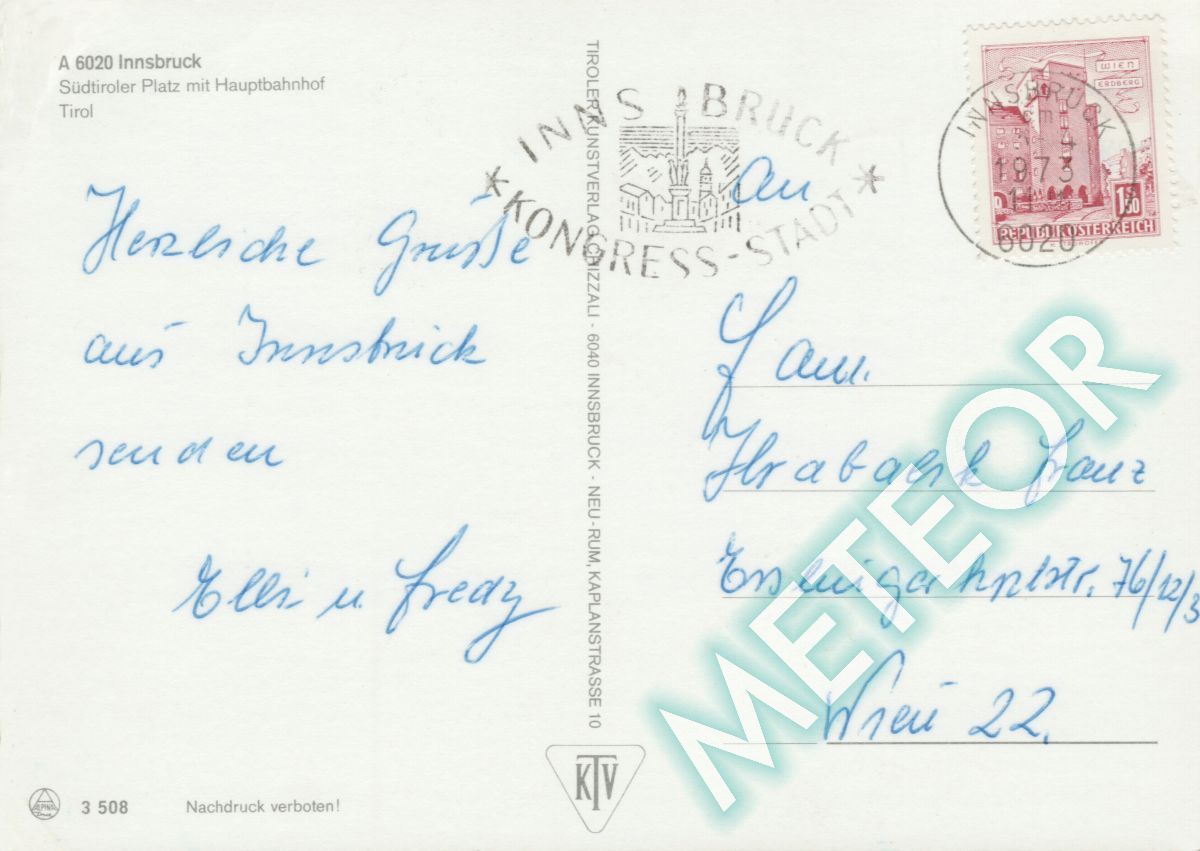 A 6020 Innsbruck
Südtiroler Platz mit Hauptbahnhof
Tirol
Herzliche Grüße
aus Innsbruck
senden
Elli u. Fredy
3 508
Nachdruck verboten!
TIROLER KUNSTVERLAG CHIZZALI - 6040 INNSBRUCK - NEU-RUM, KAPLANSTRASSE 10
KTV
INNSBRUCK
KONGRESS-STADT
WIEN
ERDBERG
1.50
REPUBLIK ÖSTERREICH
INNSBRUCK
1973
6020
An
Fam.
Hrabacsk Franz
Esslinger Hptstr. 76/12/3
Wien 22.
METEOR